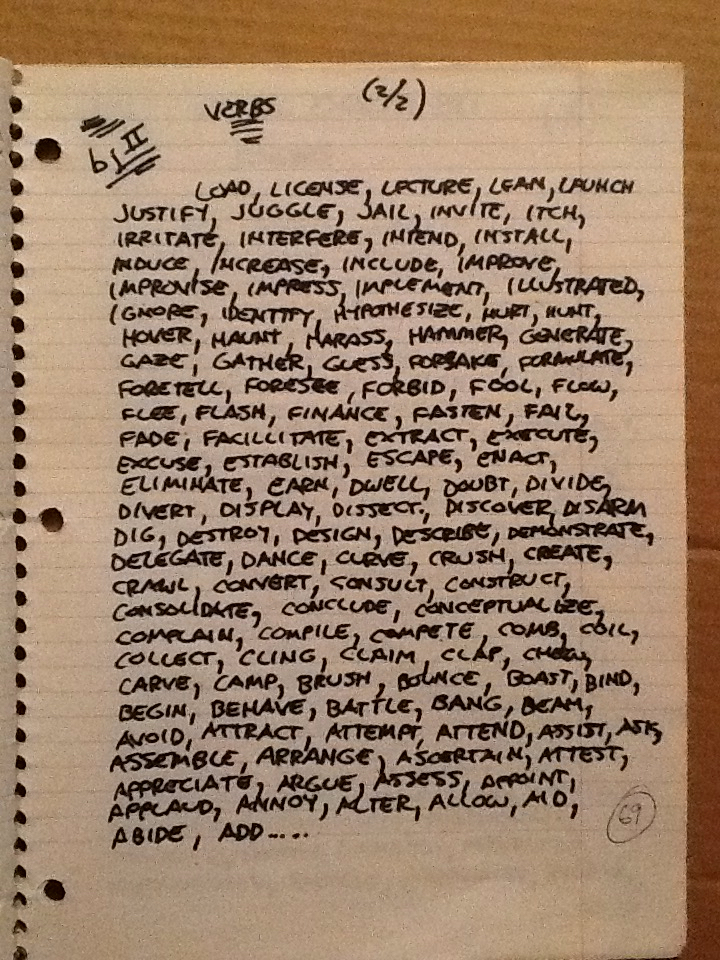 VERBS (2/2)
bJII
LOAD, LICENSE, LECTURE, LEAN, LAUNCH
JUSTIFY, JUGGLE, JAIL, INVITE, ITCH,
IRRITATE, INTERFERE, INTEND, INSTALL,
INDUCE, INCREASE, INCLUDE, IMPROVE,
IMPROVISE, IMPRESS, IMPLEMENT, ILLUSTRATED,
IGNORE, IDENTIFY, HYPOTHESIZE, HURT, HUNT,
HOVER, HAUNT, HARASS, HAMMER, GENERATE,
GAZE, GATHER, GUESS, FORSAKE, FORMULATE,
FORETELL, FORESEE, FORBID, FOOL, FLOW,
FLEE, FLASH, FINANCE, FASTEN, FAIL,
FADE, FACILLITATE, EXTRACT, EXECUTE,
EXCUSE, ESTABLISH, ESCAPE, ENACT,
ELIMINATE, EARN, DWELL, DOUBT, DIVIDE,
DIVERT, DISPLAY, DISSECT, DISCOVER, DISARM
DIG, DESTROY, DESIGN, DESCRIBE, DEMONSTRATE,
DELEGATE, DANCE, CURVE, CRUSH, CREATE,
CRAWL, CONVERT, CONSULT, CONSTRUCT,
CONSOLIDATE, CONCLUDE, CONCEPTUALIZE,
COMPLAIN, COMPILE, COMPETE, COMB, COIL,
COLLECT, CLING, CLAIM, CLAP, CHEW,
CARVE, CAMP, BRUSH, BOUNCE, BOAST, BIND,
BEGIN, BEHAVE, BATTLE, BANG, BEAM,
AVOID, ATTRACT, ATTEMPT, ATTEND, ASSIST, ASK,
ASSEMBLE, ARRANGE, ASCERTAIN, ATTEST,
APPRECIATE, ARGUE, ASSESS, APPOINT,
APPLAUD, ANNOY, ALTER, ALLOW, AID,
ABIDE, ADD.....
69